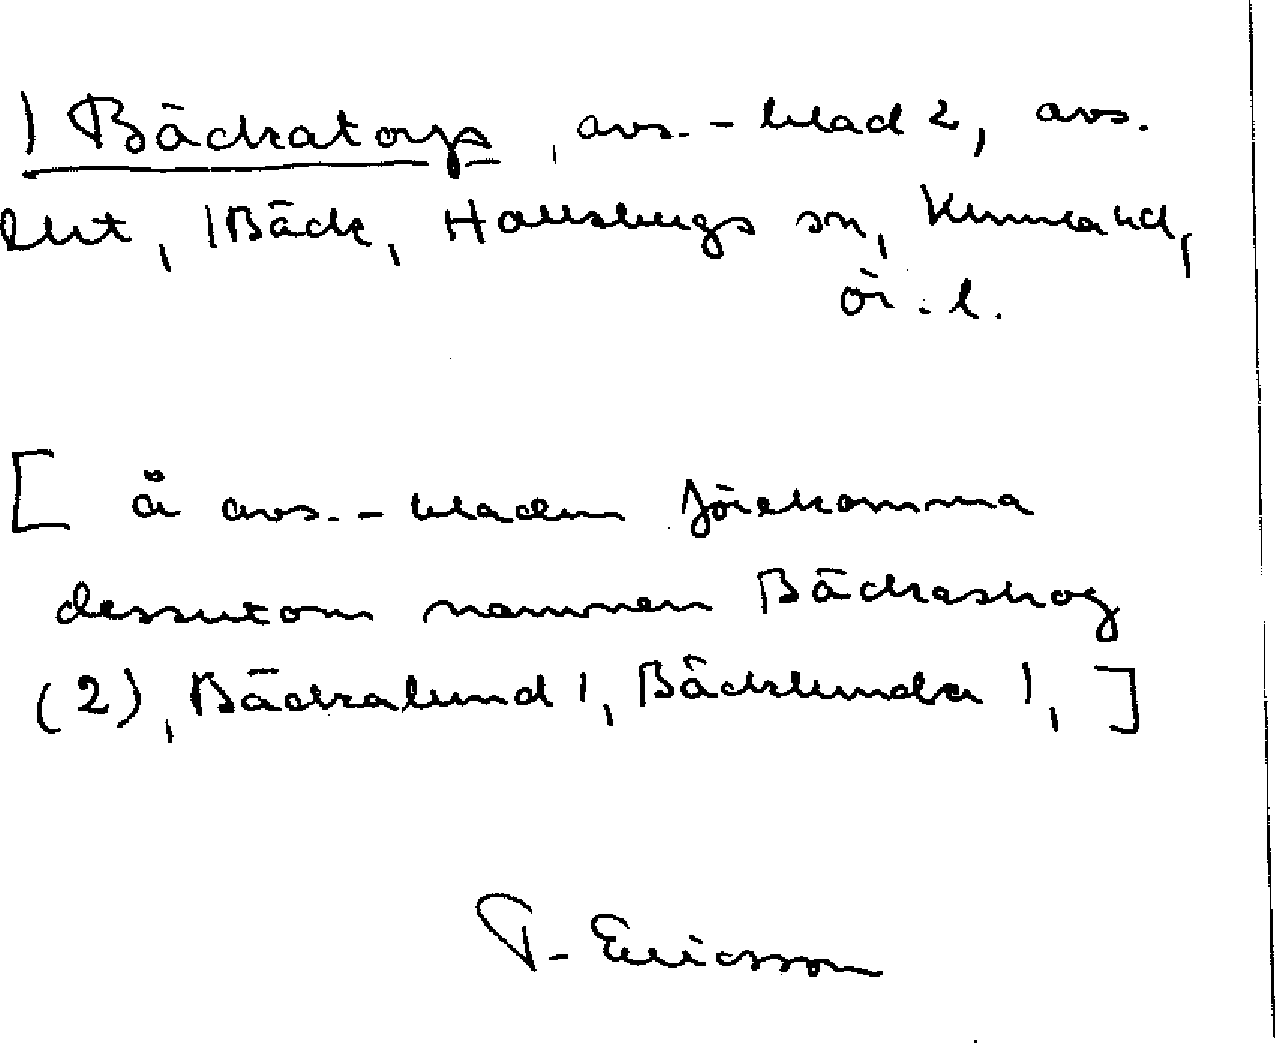 1 Bäckatorp, avs.-blad 2, avs.
1 Bäck, Hallsbergs sn, Kumla hd,
ör. l.
[ å avs.-bladen förekomma
dessutom namnen Bäckaskog
(2), Bäckalund 1, Bäcklunda 1, ]
T. Ericsson